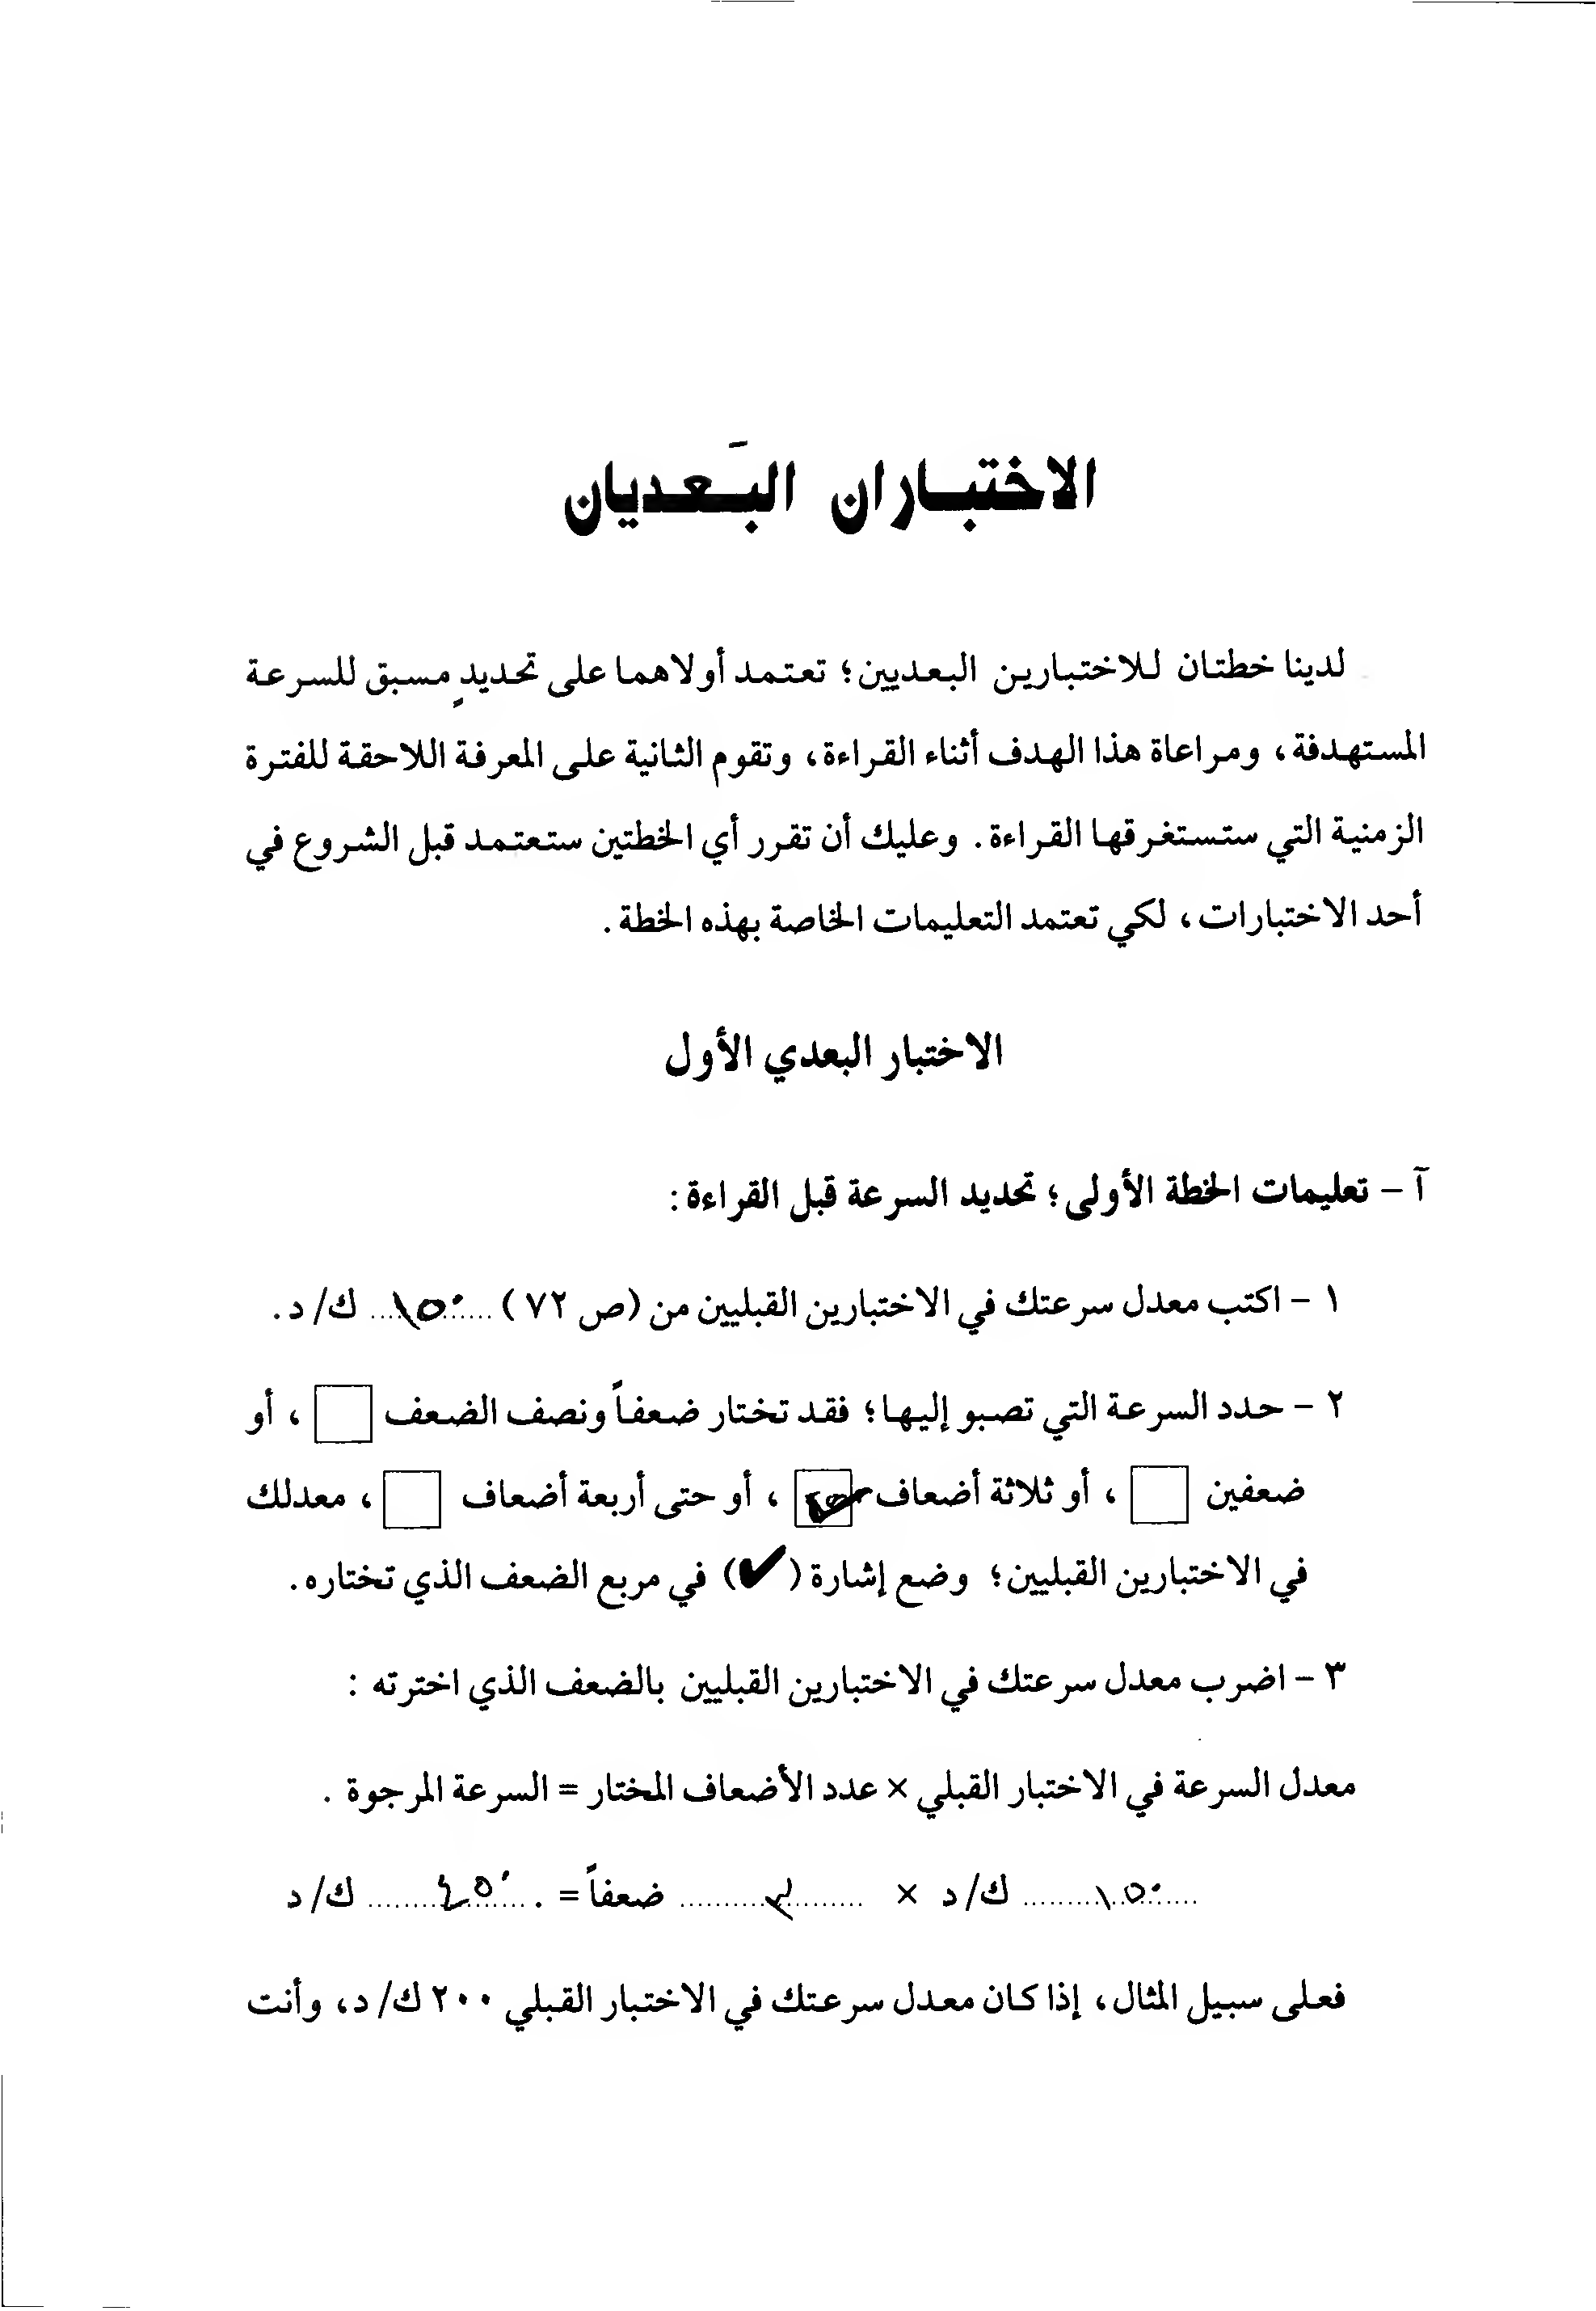 الاختباران البَعديان
لدينا خطتان للاختبارين البعديين؛ تعتمد أولاهما على تحديدٍ مسبق للسرعة
المستهدفة، ومراعاة هذا الهدف أثناء القراءة، وتقوم الثانية على المعرفة اللاحقة للفترة
الزمنية التي ستستغرقها القراءة. وعليك أن تقرر أي الخطتين ستعتمد قبل الشروع في
أحد الاختبارات، لكي تعتمد التعليمات الخاصة بهذه الخطة.
الاختبار البعدي الأول
آ - تعليمات الخطة الأولى؛ تحديد السرعة قبل القراءة:
١ - اكتب معدل سرعتك في الاختبارين القبليين من (ص ٧٢) ١٥٠ ك/د.
٢ - حدد السرعة التي تصبو إليها؛ فقد تختار ضعفاً ونصف الضعف ، أو
ضعفين ، أو ثلاثة أضعاف ✓ ، أو حتى أربعة أضعاف ، معدلك
في الاختبارين القبليين؛ وضع إشارة (✓) في مربع الضعف الذي تختاره.
٣ - اضرب معدل سرعتك في الاختبارين القبليين بالضعف الذي اخترته :
معدل السرعة في الاختبار القبلي × عدد الأضعاف المختار = السرعة المرجوة .
١٥٠ ك/د × ٣ ضعفاً = ٤٥٠ ك/د
فعلى سبيل المثال، إذا كان معدل سرعتك في الاختبار القبلي ٢٠٠ ك/د، وأنت